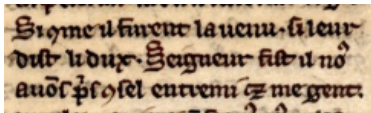 Si ꝯme il furent la uenu · si leur
dist li dux · Seigneur fist il noꝰ
auōs p̄s ꝯsel entremi ⁊ me gent.